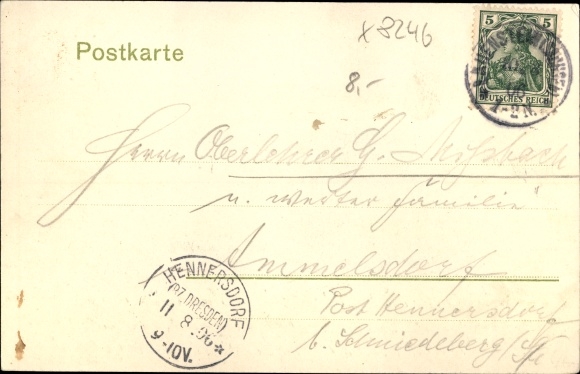 x 8246
Postkarte
8,-
5 5
DEUTSCHES REICH
1-2N.
Herrn Oberlehrer G.
u. werter Familie
Ammelsdorf
Post Hennersdorf
b. Schmiedeberg
HENNERSDORF
(BZ. DRESDEN)
11 8 06 *
9-10V.